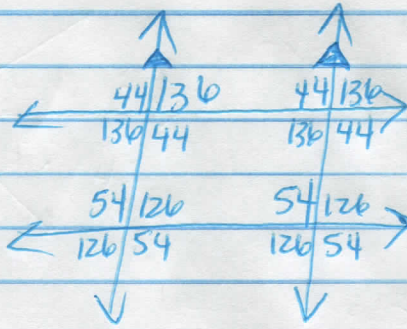 44 136 44 136
136 44 136 44
54 126 54 126
126 54 126 54